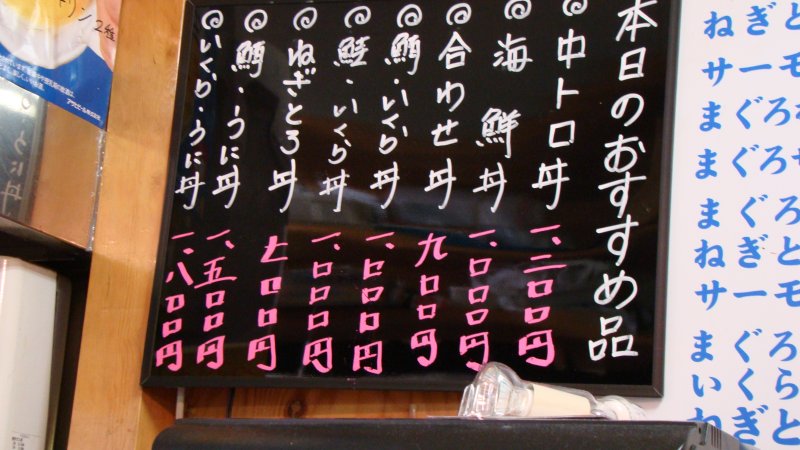 本日のおすすめ品
◎中トロ丼 一、二〇〇円
◎海鮮丼 一、〇〇〇円
◎合わせ丼 九〇〇円
◎鮪・いくら丼 一、〇〇〇円
◎鮭・いくら丼 一、〇〇〇円
◎ねぎとろ丼 七〇〇円
◎鮪・うに丼 一、五〇〇円
◎いくら・うに丼 一、八〇〇円
ねぎと
サーモ
まぐろ
まぐろ
まぐろ
ねぎと
サーモ
まぐろ
いくら
ねぎと